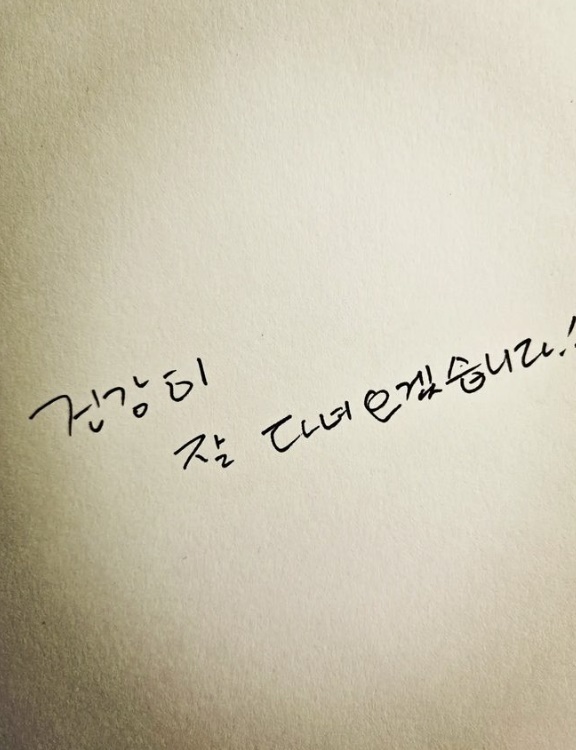 건강히
잘 다녀오겠습니다.!